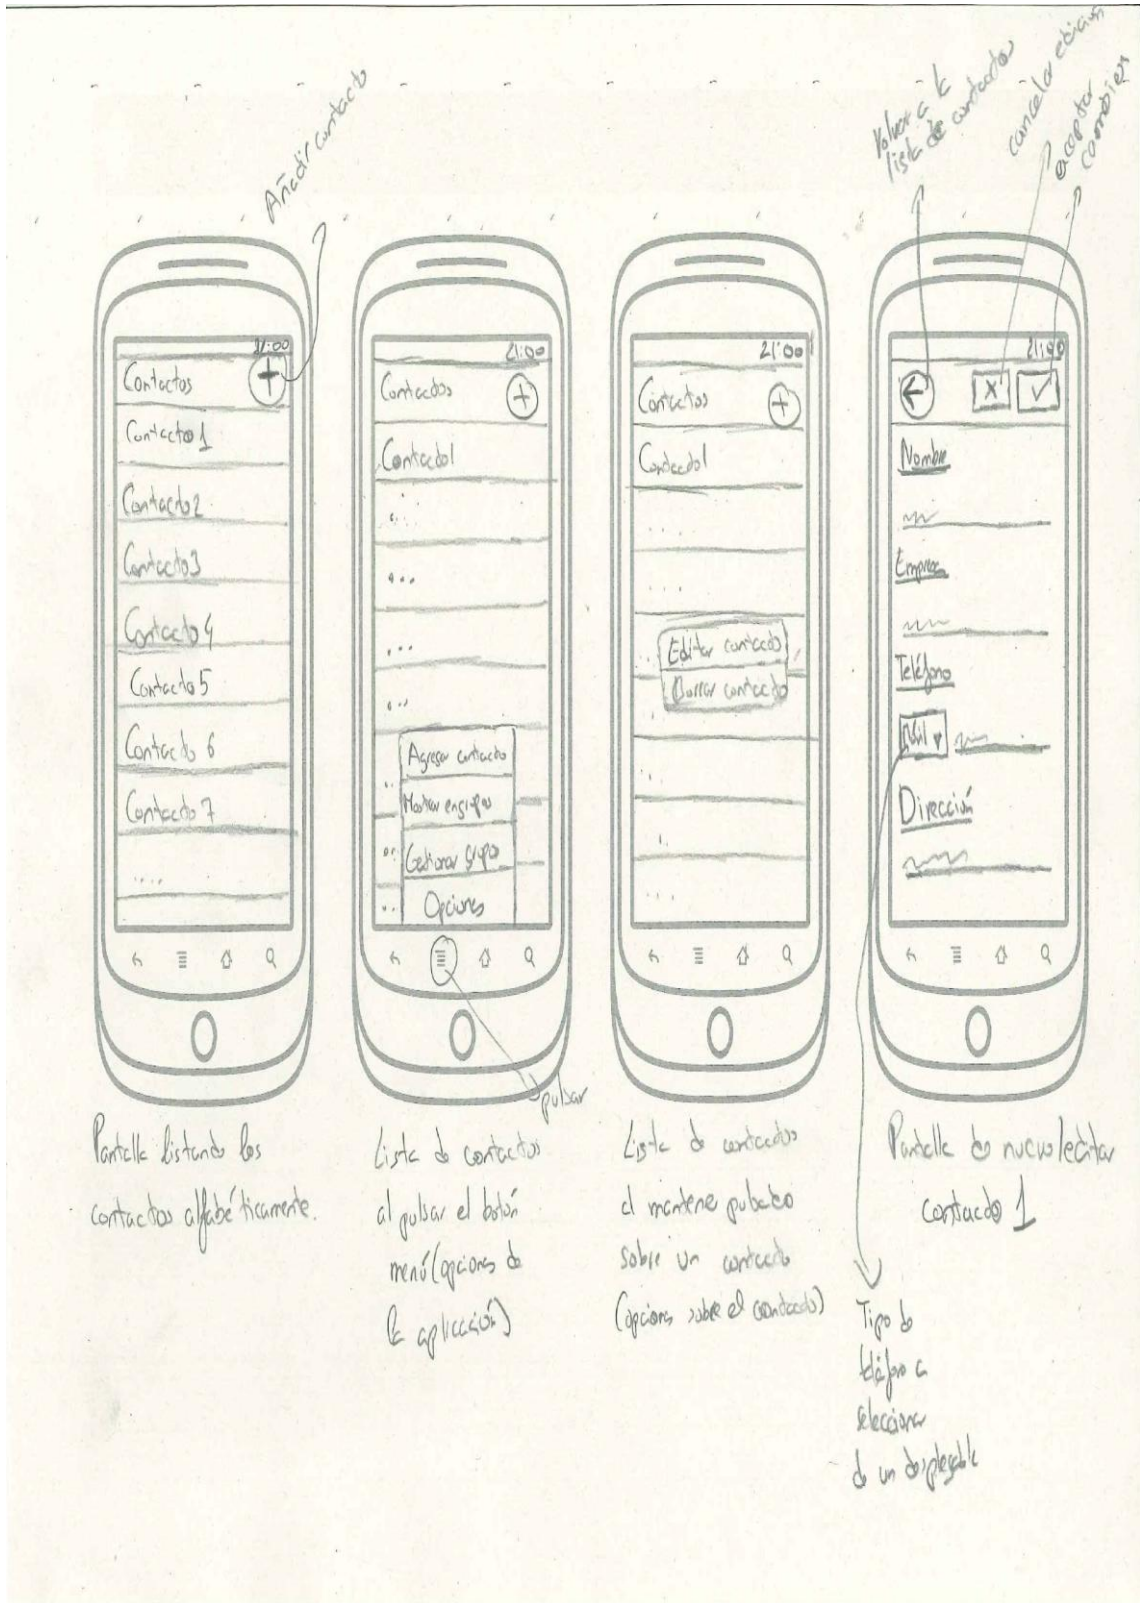 Añadir contacto
Volver a la
lista de contactos
cancelar edición
aceptar
cambios
21:00
Contactos
+
Contacto1
Contacto2
Contacto3
Contacto4
Contacto5
Contacto 6
Contacto 7
....
Pantalla listando los
contactos alfabéticamente.
21:00
Contactos
+
Contacto1
...
...
...
...
Agregar contacto
Mostrar en grupos
Gestionar grupo
Opciones
pulsar
Lista de contactos
al pulsar el botón
menú (opciones de
la aplicación)
21:00
Contactos
+
Contacto1
....
....
Editar contacto
Borrar contacto
Lista de contactos
al mantene pulsado
sobre un contacto
(opciones sobre el contacto)
21:00
X
Nombre
Empresa
Teléfono
Móvil
Dirección
Pantalla de nuevo/editar
contacto 1
Tipo de
teléfono a
seleccionar
de un desplegable